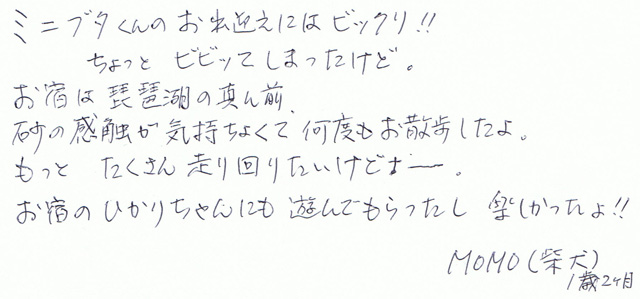 ミニブタくんのお出迎えにはビックリ!!
ちょっとビビッてしまったけど。
お宿は琵琶湖の真ん前、
砂の感触が気持ちよくて何度もお散歩したよ。
もっと たくさん走り回りたいけどなー。
お宿のひかりちゃんにも遊んでもらったし 楽しかったよ!!
MOMO(柴犬)
1歳2ヶ月